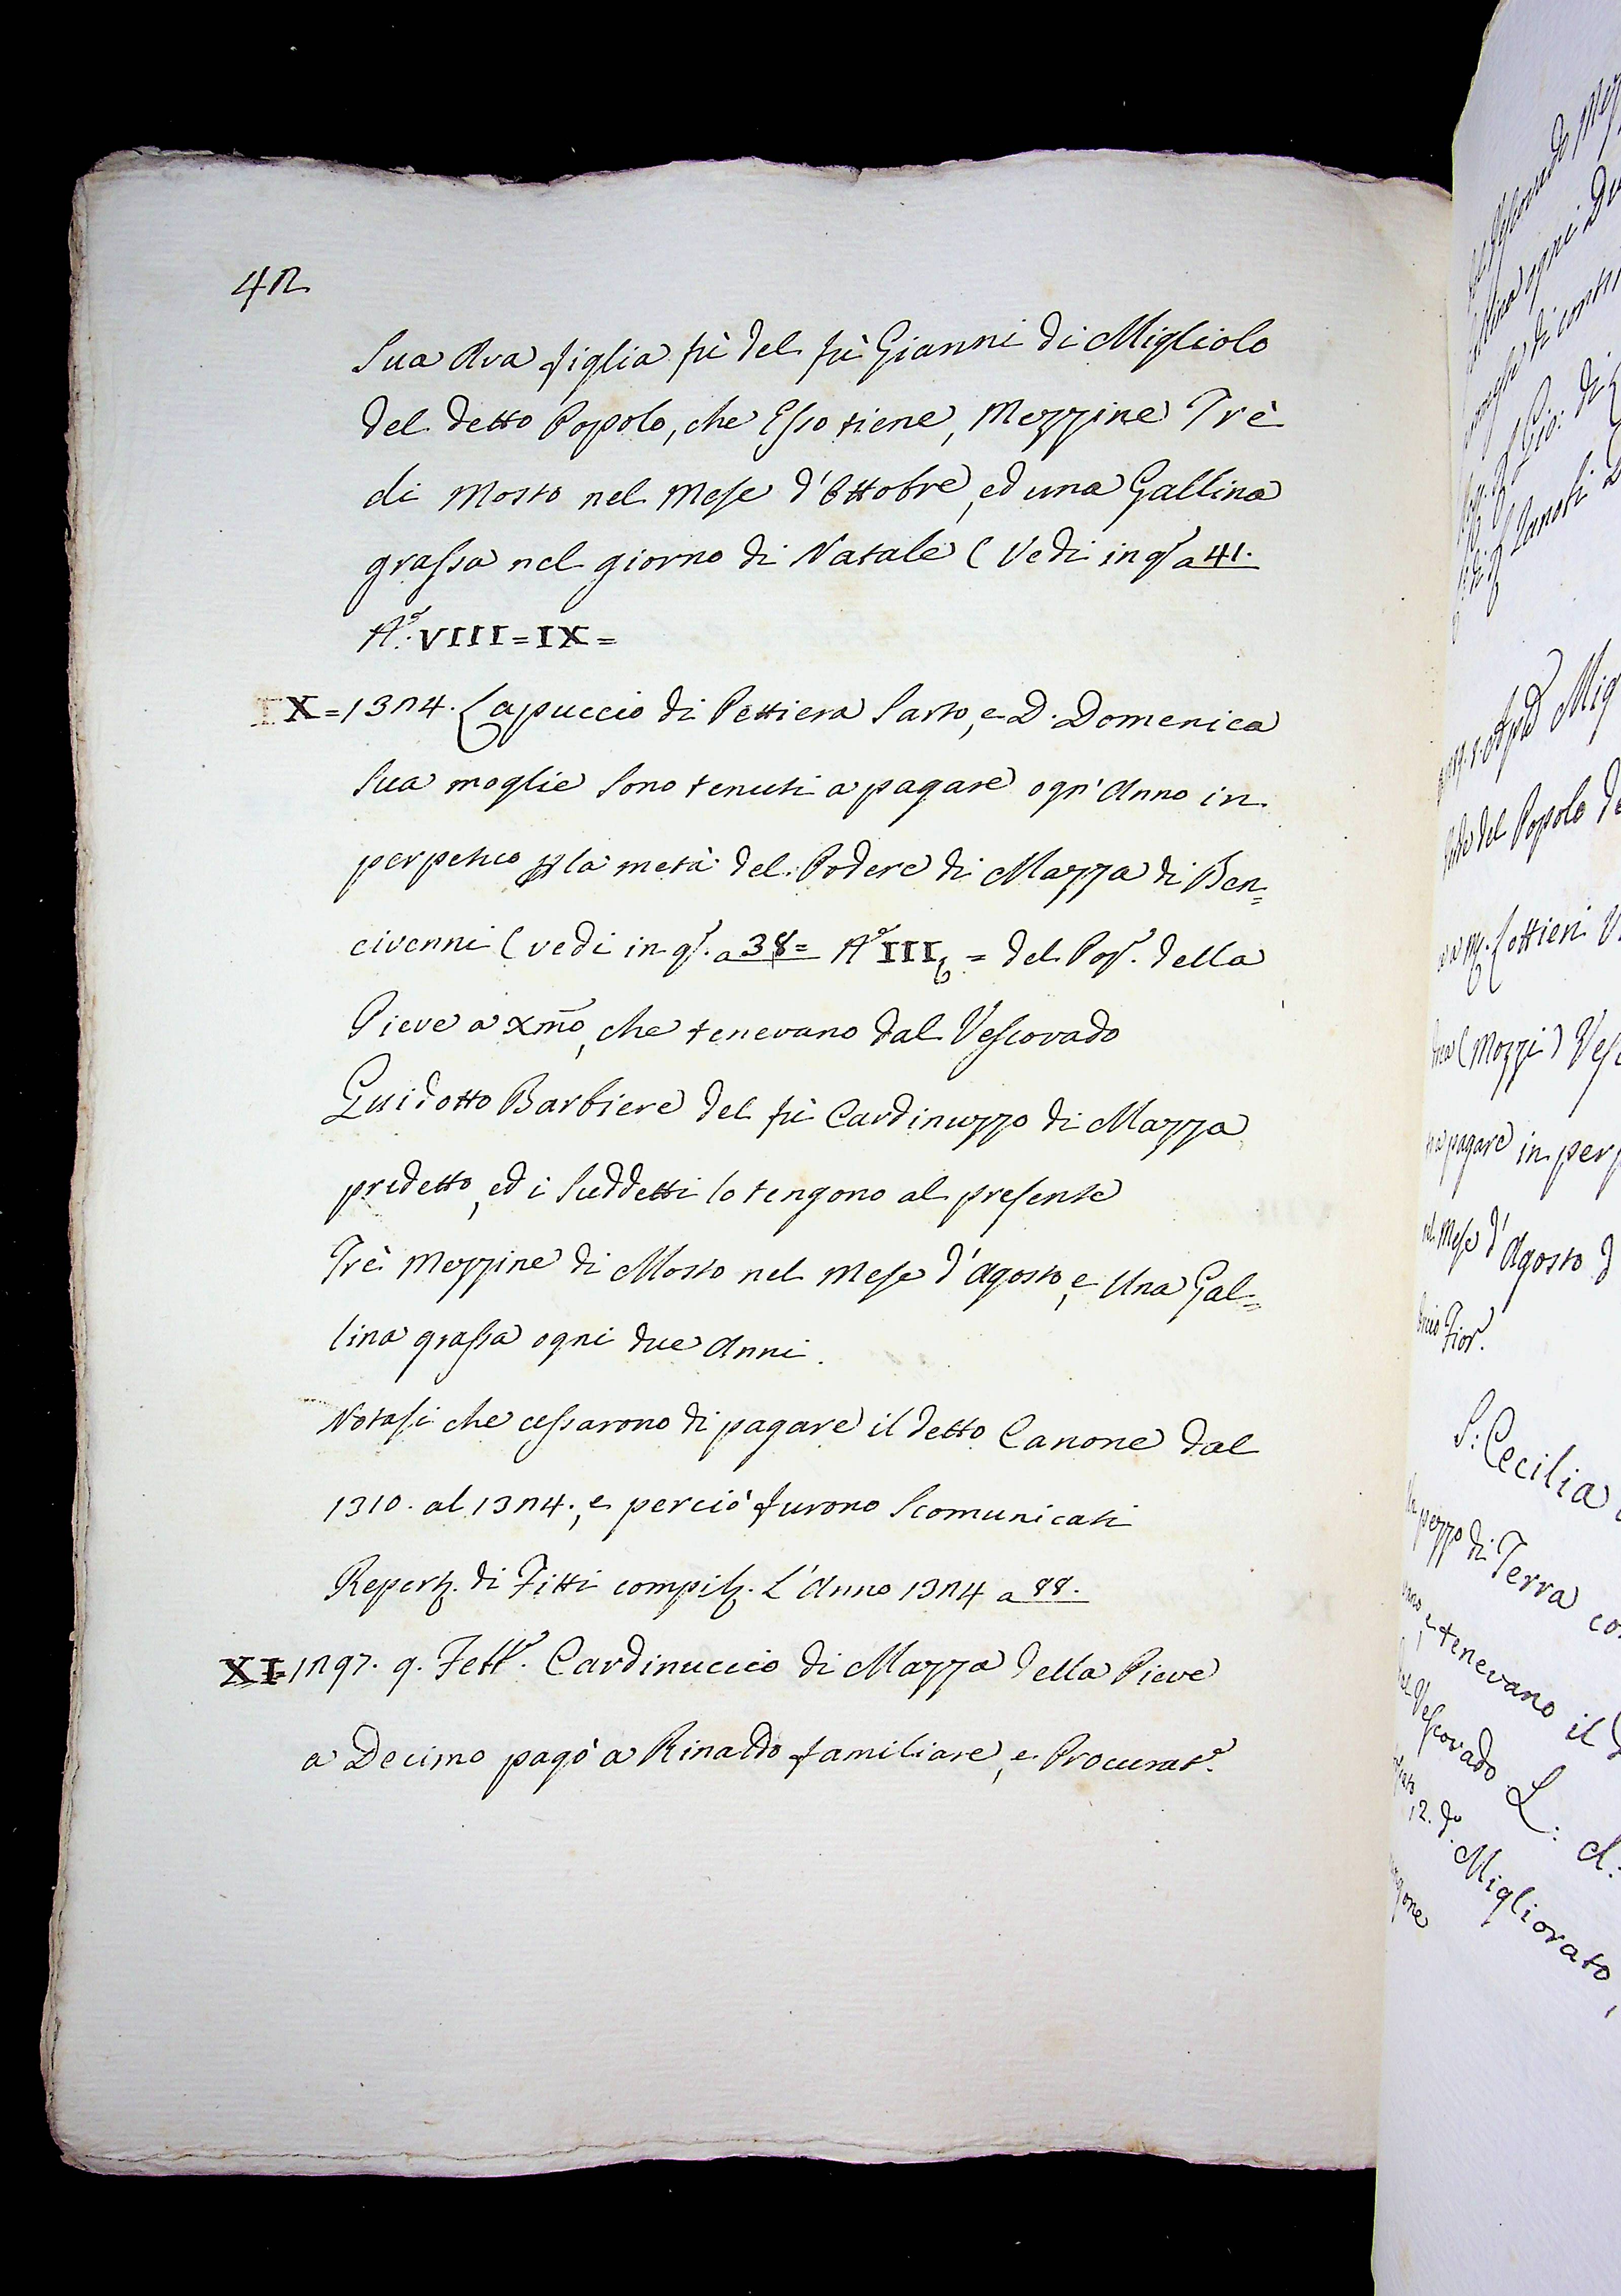 42
Sua Ava figlia fù del fù Gianni di Migliolo
del detto Popolo, che Esso tiene, Mezzine Trè
di Mosto nel Mese d'Ottobre, ed una Gallina
grassa nel giorno di Natale ( Vedi in qt a 41.
Aº. VIII = IX =
X = 1324. Lapuccio di Pettiera Sarto, e D. Domenica
sua moglie sono tenuti a pagare ogn'Anno in
perpetuo p la metà del Podere di Mazza di Ben=
civenni ( vedi in qt. a 38 = Aº III = del Popº. della
Pieve a Xmo, che tenevano dal Vescovado
Guidotto Barbiere del fù Cardinuzzo di Mazza
predetto, ed i suddetti lo tengono al presente
Trè Mezzine di Mosto nel Mese d'Agosto, e Una Gal=
lina grassa ogni due Anni.
Notasi che cessarono di pagare il detto Canone dal
1310. al 1324., e perciò furono Scomunicati
Repert. di Fitti compil. L'Anno 1324 a 88.
XI = 1297. 9. Febbº. Cardinuccio di Mazza della Pieve
a Decimo pagò a Rinaldo familiare, e Procuratº.
ogni Du
di conti
Gio: di
Mig
del Popolo de
Lottieri V
(Mozzi) Vesc
pagare in perp
Mese d'Agosto d
Fior.
S: Cecilia
pezzo di Terra co
e tenevano il d
Vescovado L: d:
12. dº. Migliorato,